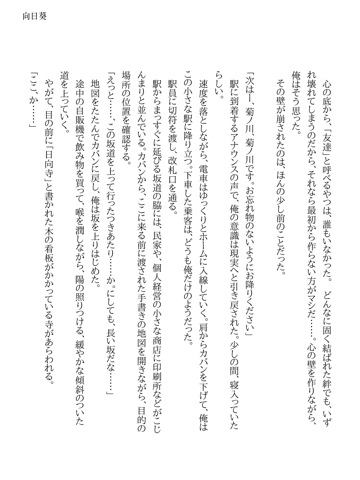 向日葵
心の底から、「友達」と呼べるやつは、誰もいなかった。どんなに固く結ばれた絆でも、いず
れ壊れてしまうのだから、それなら最初から作らない方がマシだ……。心の壁を作りながら、
俺はそう思った。
その壁が崩されたのは、ほんの少し前のことだった。
「次は―、菊ノ川、菊ノ川です。お忘れ物のないようにお降りください」
駅に到着するアナウンスの声で、俺の意識は現実へと引き戻された。少しの間、寝入っていた
らしい。
速度を落としながら、電車はゆっくりとホームに入線していく。肩からカバンを下げて、俺は
この小さな駅に降り立つ。下車した乗客は、どうも俺だけのようだった。
駅員に切符を渡し、改札口を通る。
駅からまっすぐに延びる坂道の脇には、民家や、個人経営の小さな商店に印刷所などがこじ
んまりと並んでいる。カバンから、ここに来る前に渡された手書きの地図を開きながら、目的の
場所の位置を確認する。
「えっと……、この坂道を上って行ったつきあたり……か。にしても、長い坂だな……」
地図をたたんでカバンに戻し、俺は坂を上りはじめた。
途中の自販機で飲み物を買って、喉を潤しながら、陽の照りつける、緩やかな傾斜のついた
道を上っていく。
やがて、目の前に『日向寺』と書かれた木の看板がかかっている寺があらわれる。
「ここ、か……」